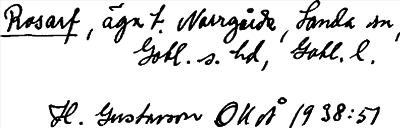 Rosarf, ägn t. Norrgårda, Sanda sn,
Gotl. s. hd, Gotl. l.
H. Gustavson OUÅ 1938:51